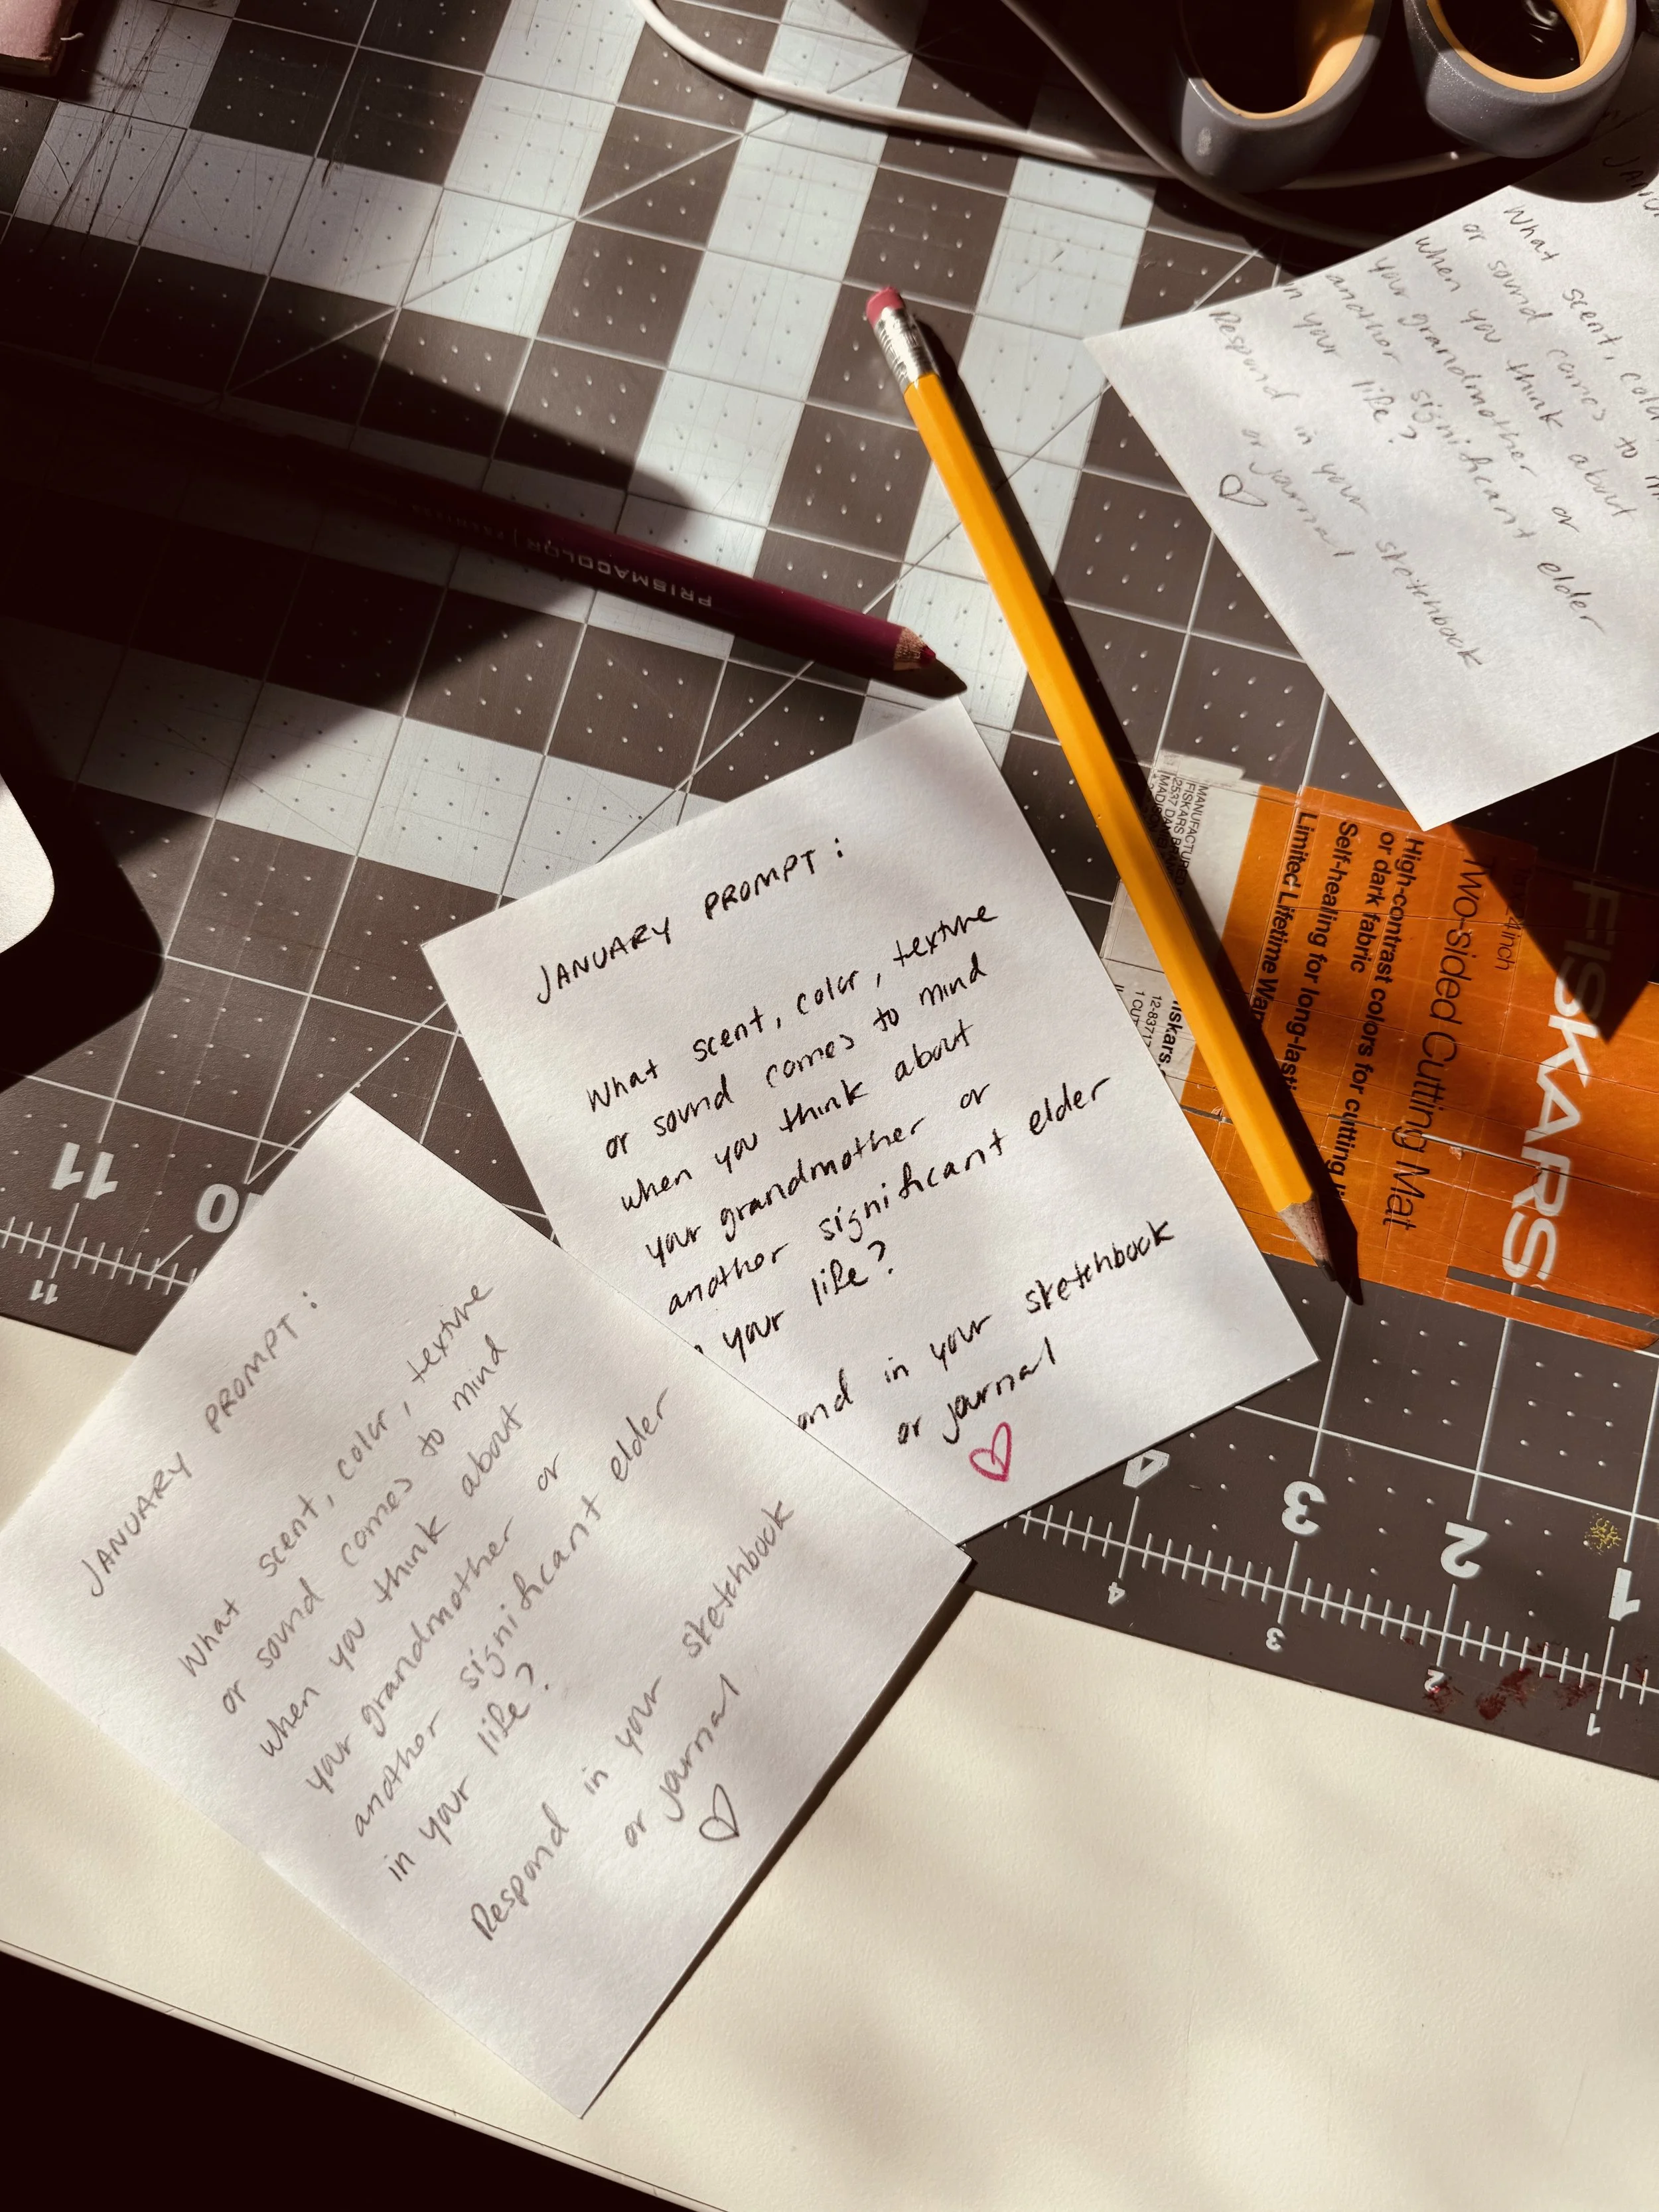 JANUARY PROMPT:
What scent, color, texture
or sound comes to mind
when you think about
your grandmother or
another significant elder
your life?
ond in your sketchbook
or journal
JANUARY PROMPT:
What scent, color, texture
or sound comes to mind
when you think about
your grandmother or
another significant elder
in your life?
Respond in your sketchbook
or journal
What scent, colo
or sound comes to m
when you think about
your grandmother or
another significant elder
n your life?
Respond in your sketchbook
or journal
PRISMACOLOR
FISKARS
Two-sided Cutting Mat
High-contrast colors for cutting li
or dark fabric
Self-healing for long-lasti
Limited Lifetime War
MANUFACTURED
FISKARS
2537 DAN
iskars
11
0
11
4
3
2
1
4
3
2
1